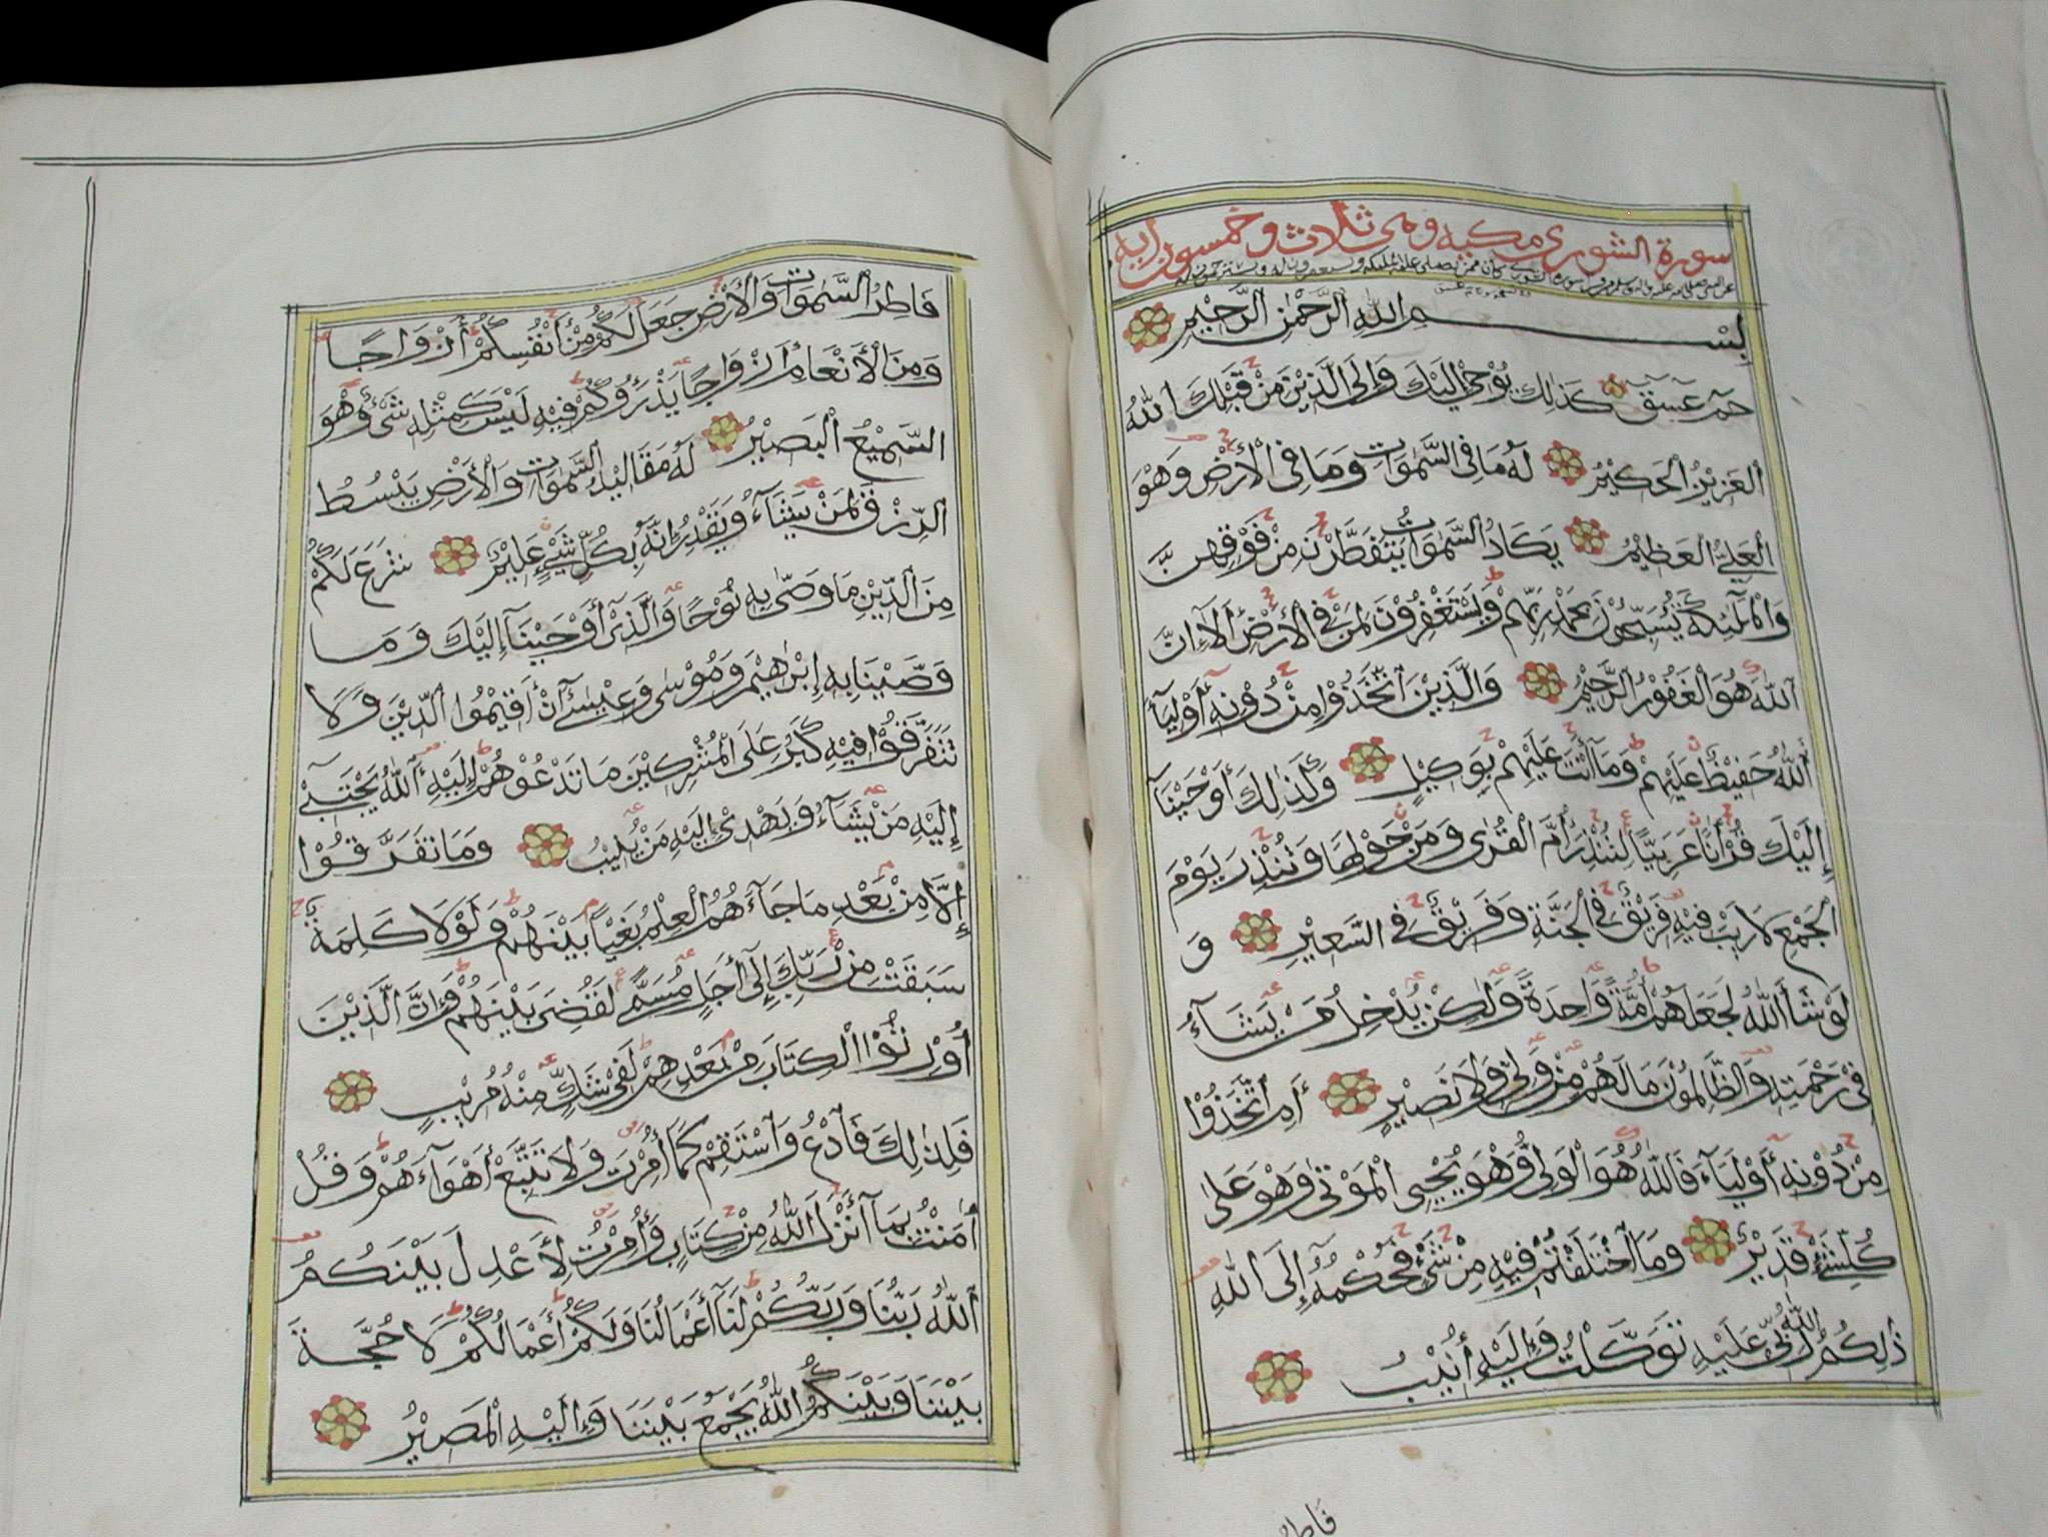 سورة الشورى مكية وهي ثلاث وخمسون اية
بِسْمِ اللهِ الرَّحْمٰنِ الرَّحِيْمِ
حٓمٓ عٓسٓقٓ كَذٰلِكَ يُوْحِيْ إِلَيْكَ وَإِلَى الَّذِيْنَ مِنْ قَبْلِكَ اللهُ
الْعَزِيْزُ الْحَكِيْمُ لَهُ مَا فِى السَّمٰوَاتِ وَمَا فِى الْأَرْضِ وَهْوَ
الْعَلِيُّ الْعَظِيْمُ يَكَادُ السَّمٰوَاتُ يَتَفَطَّرْنَ مِنْ فَوْقِهِنَّ
وَالْمَلٰٓئِكَةُ يُسَبِّحُوْنَ بِحَمْدِ رَبِّهِمْ وَيَسْتَغْفِرُوْنَ لِمَنْ فِى الْأَرْضِ أَلَآ إِنَّ
اللهَ هُوَ الْغَفُوْرُ الرَّحِيْمُ وَالَّذِيْنَ اتَّخَذُوْا مِنْ دُوْنِهِ أَوْلِيَآءَ
اللهُ حَفِيْظٌ عَلَيْهِمْ وَمَآ أَنْتَ عَلَيْهِمْ بِوَكِيْلٍ وَكَذٰلِكَ أَوْحَيْنَآ
إِلَيْكَ قُرْاٰنًا عَرَبِيًّا لِتُنْذِرَ أُمَّ الْقُرٰى وَمَنْ حَوْلَهَا وَتُنْذِرَ يَوْمَ
الْجَمْعِ لَا رَيْبَ فِيْهِ فَرِيْقٌ فِى الْجَنَّةِ وَفَرِيْقٌ فِى السَّعِيْرِ وَ
لَوْ شَآءَ اللهُ لَجَعَلَهُمْ أُمَّةً وَّاحِدَةً وَلٰكِنْ يُدْخِلُ مَنْ يَشَآءُ
فِيْ رَحْمَتِهِ وَالظَّالِمُوْنَ مَا لَهُمْ مِنْ وَلِيٍّ وَلَا نَصِيْرٍ أَمِ اتَّخَذُوْا
مِنْ دُوْنِهِ أَوْلِيَآءَ فَاللهُ هُوَ الْوَلِيُّ وَهْوَ يُحْيِى الْمَوْتٰى وَهْوَ عَلٰى
كُلِّ شَيْءٍ قَدِيْرٌ وَمَا اخْتَلَفْتُمْ فِيْهِ مِنْ شَيْءٍ فَحُكْمُهُ إِلَى اللهِ
ذٰلِكُمُ اللهُ رَبِّيْ عَلَيْهِ تَوَكَّلْتُ وَإِلَيْهِ أُنِيْبُ
فاطر
فَاطِرُ السَّمٰوَاتِ وَالْأَرْضِ جَعَلَ لَكُمْ مِنْ أَنْفُسِكُمْ أَزْوَاجًا
وَمِنَ الْأَنْعَامِ أَزْوَاجًا يَذْرَؤُكُمْ فِيْهِ لَيْسَ كَمِثْلِهِ شَيْءٌ وَهْوَ
السَّمِيْعُ الْبَصِيْرُ لَهُ مَقَالِيْدُ السَّمٰوَاتِ وَالْأَرْضِ يَبْسُطُ
الرِّزْقَ لِمَنْ يَشَآءُ وَيَقْدِرُ إِنَّهُ بِكُلِّ شَيْءٍ عَلِيْمٌ شَرَعَ لَكُمْ
مِنَ الدِّيْنِ مَا وَصّٰى بِهِ نُوْحًا وَالَّذِيْ أَوْحَيْنَآ إِلَيْكَ وَمَا
وَصَّيْنَا بِهِ إِبْرٰهِيْمَ وَمُوْسٰى وَعِيْسٰى أَنْ أَقِيْمُوا الدِّيْنَ وَلَا
تَتَفَرَّقُوْا فِيْهِ كَبُرَ عَلَى الْمُشْرِكِيْنَ مَا تَدْعُوْهُمْ إِلَيْهِ اللهُ يَجْتَبِيْٓ
إِلَيْهِ مَنْ يَشَآءُ وَيَهْدِيْ إِلَيْهِ مَنْ يُنِيْبُ وَمَا تَفَرَّقُوْا
إِلَّا مِنْ بَعْدِ مَا جَآءَهُمُ الْعِلْمُ بَغْيًا بَيْنَهُمْ وَلَوْلَا كَلِمَةٌ
سَبَقَتْ مِنْ رَبِّكَ إِلٰٓى أَجَلٍ مُسَمًّى لَقُضِيَ بَيْنَهُمْ وَإِنَّ الَّذِيْنَ
أُوْرِثُوا الْكِتَابَ مِنْ بَعْدِهِمْ لَفِيْ شَكٍّ مِنْهُ مُرِيْبٍ
فَلِذٰلِكَ فَادْعُ وَاسْتَقِمْ كَمَآ أُمِرْتَ وَلَا تَتَّبِعْ أَهْوَآءَهُمْ وَقُلْ
اٰمَنْتُ بِمَآ أَنْزَلَ اللهُ مِنْ كِتَابٍ وَأُمِرْتُ لِأَعْدِلَ بَيْنَكُمُ
اللهُ رَبُّنَا وَرَبُّكُمْ لَنَآ أَعْمَالُنَا وَلَكُمْ أَعْمَالُكُمْ لَا حُجَّةَ
بَيْنَنَا وَبَيْنَكُمُ اللهُ يَجْمَعُ بَيْنَنَا وَإِلَيْهِ الْمَصِيْرُ